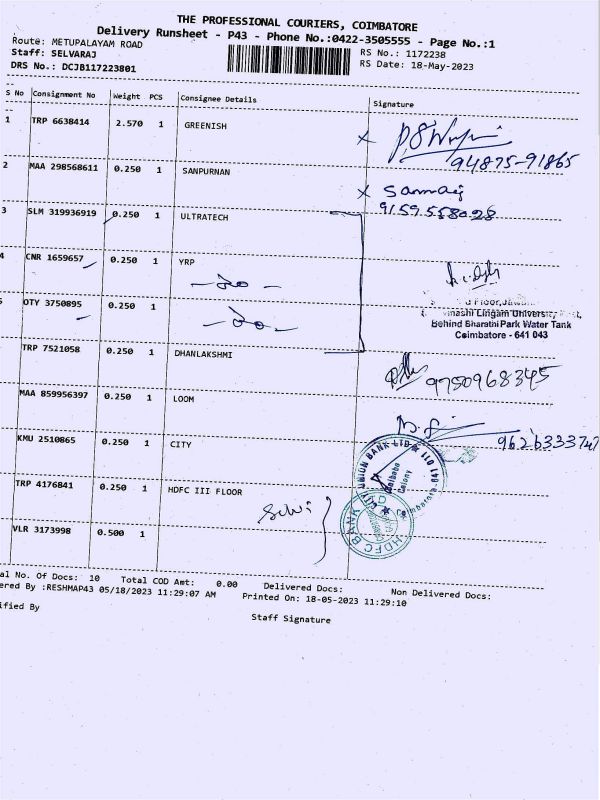 THE PROFESSIONAL COURIERS, COIMBATORE
Delivery Runsheet - P43 - Phone No.:0422-3505555 - Page No.:1
Route: METUPALAYAM ROAD
Staff: SELVARAJ
DRS No.: DCJB117223801
RS No.: 1172238
RS Date: 18-May-2023
S No Consignment No Weight PCS Consignee Details Signature
1 TRP 6638414 2.570 1 GREENISH
94875-91865
2 MAA 298568611 0.250 1 SANPURNAN
9159558028
3 SLM 319936919 0.250 1 ULTRATECH
4 CNR 1659657 0.250 1 YRP
OTY 3750895 0.250 1
Lingam University
Behind Bharathi Park Water Tank
Coimbatore - 641 043
TRP 7521058 0.250 1 DHANLAKSHMI
9750968345
MAA 859956397 0.250 1 LOOM
9626333747
KMU 2510865 0.250 1 CITY
UNION BANK LTD
Saibaba Colony
Coimbatore
TRP 4176841 0.250 1 HDFC III FLOOR
HDFC BANK
VLR 3173998 0.500 1
al No. Of Docs: 10 Total COD Amt: 0.00 Delivered Docs: Non Delivered Docs:
ered By :RESHMAP43 05/18/2023 11:29:07 AM Printed On: 18-05-2023 11:29:10
ified By
Staff Signature